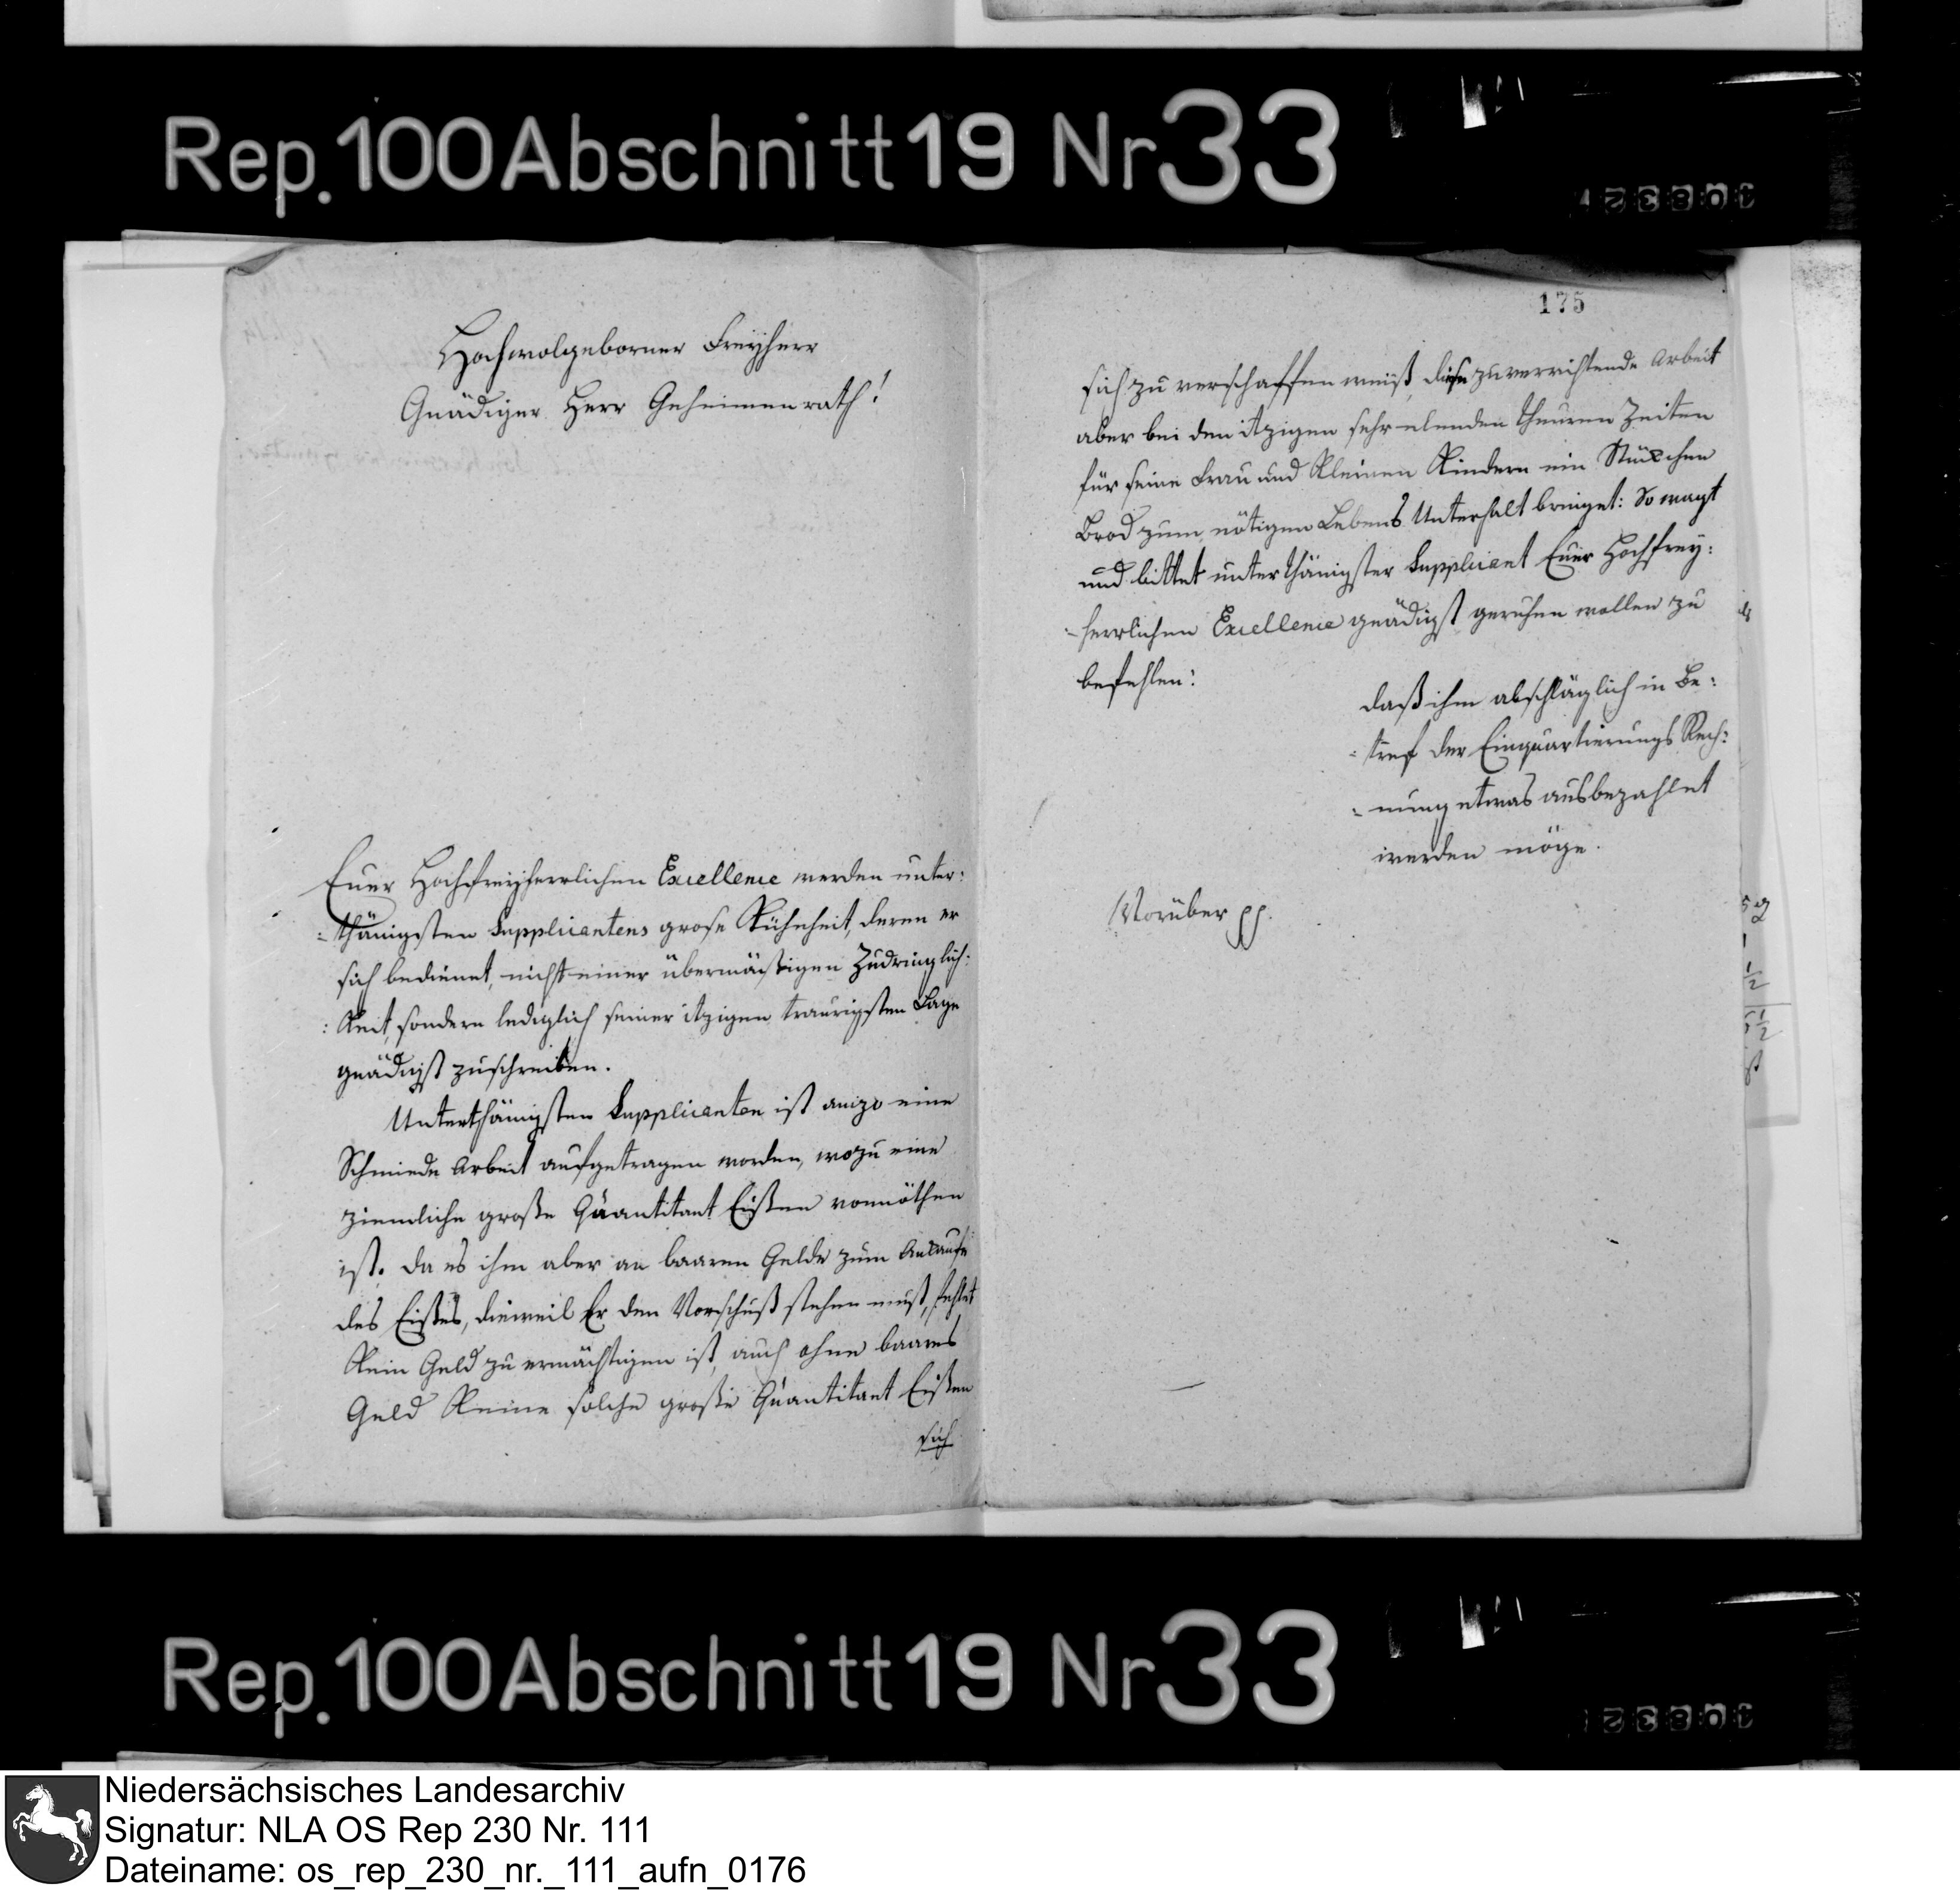 Rep. 100 Abschnitt 19 Nr 33
10832
Hochwolgeborner Freyherr
Gnädiger Herr Geheimenrath!
Euer Hochfreyherrlichen Excellence werden unter:
: thänigsten Supplicantens grose Kühnheit, deren er
sich bedienet, nicht einer übermäßigen Zudringlich:
: keit, sondern lediglich seiner itzigen traurigsten Lage
gnädigst zuschreiben.
Unterthänigsten Supplicanten ist anizo eine
Schmiede Arbeit aufgetragen worden, wozu eine
ziemliche große Quantitaet Eißen vonnöthen
ist. Da es ihm aber an baaren Gelde zum Ankaufe
des Eißes, dieweil Er den Vorschuß stehen muß, fehlet
kein Geld zu ermächtigen ist, auch ohne baares
Geld keine solche große Quantitaet Eißen
sich
175
sich zu verschaffen weiß, diese zuverrichtende Arbeit
aber bei den itzigen sehr elenden theuren Zeiten
für seine Frau und kleinen Kindern ein Stükchen
Brod zum nötigen Lebens Unterhalt bringet: So wagt
und bittet unterthänigster Supplicant Euer Hochfrey:
: herrlichen Excellence gnädigst geruhen wollen zu
befehlen:
daß ihm abschläglich in Be:
: tref der Einquartierungs Rech:
: nung etwas ausbezahlet
werden möge.
Worüber pp.
Rep. 100 Abschnitt 19 Nr 33
10832
Niedersächsisches Landesarchiv
Signatur: NLA OS Rep 230 Nr. 111
Dateiname: os_rep_230_nr._111_aufn_0176